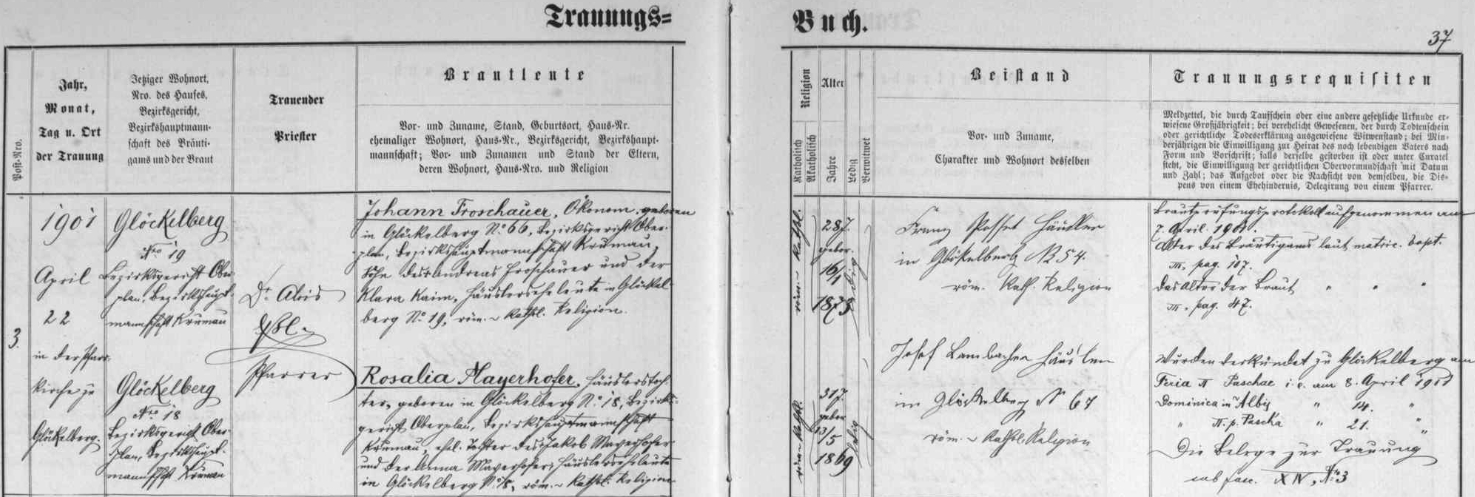 Trauungs=
Buch.
37
Post-Nro.
Jahr,
Monat,
Tag u. Ort
der Trauung
Jetziger Wohnort,
Nro. des Hauses,
Bezirksgericht,
Bezirkshauptmann-
schaft des Bräuti-
gams und der Braut
Trauender
Priester
Brautleute
Vor- und Zuname, Stand, Geburtsort, Haus-Nr.
ehemaliger Wohnort, Haus-Nr., Bezirksgericht, Bezirkshaupt-
mannschaft; Vor- und Zunamen und Stand der Eltern,
deren Wohnort, Haus-Nro. und Religion
Religion
Katholisch
Akatholisch
Alter
Jahre
Ledig
Verwitwet
Beistand
Vor- und Zuname,
Charakter und Wohnort desselben
Trauungsrequisiten
Meldzettel, die durch Taufschein oder eine andere gesetzliche Urkunde er-
wiesene Großjährigkeit; bei verehelicht Gewesenen, der durch Todtenschein
oder gerichtliche Todeserklärung ausgewiesene Witwenstand; bei Min-
derjährigen die Einwilligung zur Heirat des noch lebendigen Vaters nach
Form und Vorschrift; falls derselbe gestorben ist oder unter Curatel
steht, die Einwilligung der gerichtlichen Obervormundschaft mit Datum
und Zahl; das Aufgebot oder die Nachsicht von demselben, die Dis-
pens von einem Ehehindernis, Delegirung von einem Pfarrer.
3.
1901
April
22
in der Pfarr-
kirche zu
Glöckelberg.
Glöckelberg
Nro 19
Bezirksgericht Ober-
plan, Bezirkshaupt-
mannschaft Krumau
Glöckelberg
Nro 18
Bezirksgericht Ober-
plan, Bezirkshaupt-
mannschft Krumau
Dr. Alois
Essl
Pfarrer
Johann Froschauer, Ökonom, geboren
in Glöckelberg No. 66, Bezirksgericht Ober-
plan, Bezirkshauptmannschaft Krumau,
Sohn des Andreas Froschauer und der
Klara Kaim, Häuslerseheleute in Glöckel-
berg No. 19, röm.-kathl. Religion.
Rosalia Mayerhofer, Häuslerstoch-
ter, geboren in Glöckelberg No. 18, Bezirks-
gericht Oberplan, Bezirkshauptmannschaft
Krumau, ehl. Tochter des Jakob Mayerhofer
und der Anna Mayerhofer, Häuslerseheleute
in Glöckelberg No. 18, röm.-kathl. Religion
röm.-kathl.
28 J.
gebor.
16/1
1873
ledig
röm.-kathl.
31 J.
gebor.
13/5
1869
ledig
Franz Posset Häusler
in Glöckelberg N. 54.
röm. kath. Religion
Josef Lambacher Häusler
in Glöckelberg No 67
röm.-kathl. Religion
Brautprüfungsprotokoll aufgenommen am
7. April 1901.
Alter des Bräutigams laut matric. bapt.
III. pag. 107.
das Alter der Braut " " "
III. pag. 47.
Wurden verkündet zu Glöckelberg am
Feria II Paschae i. e. am 8. April 1901
Dominica in Albis " 14. "
" II. p. Pascha " 21. "
Die Belege zur Trauung
sub fasc. XIV, No. 3